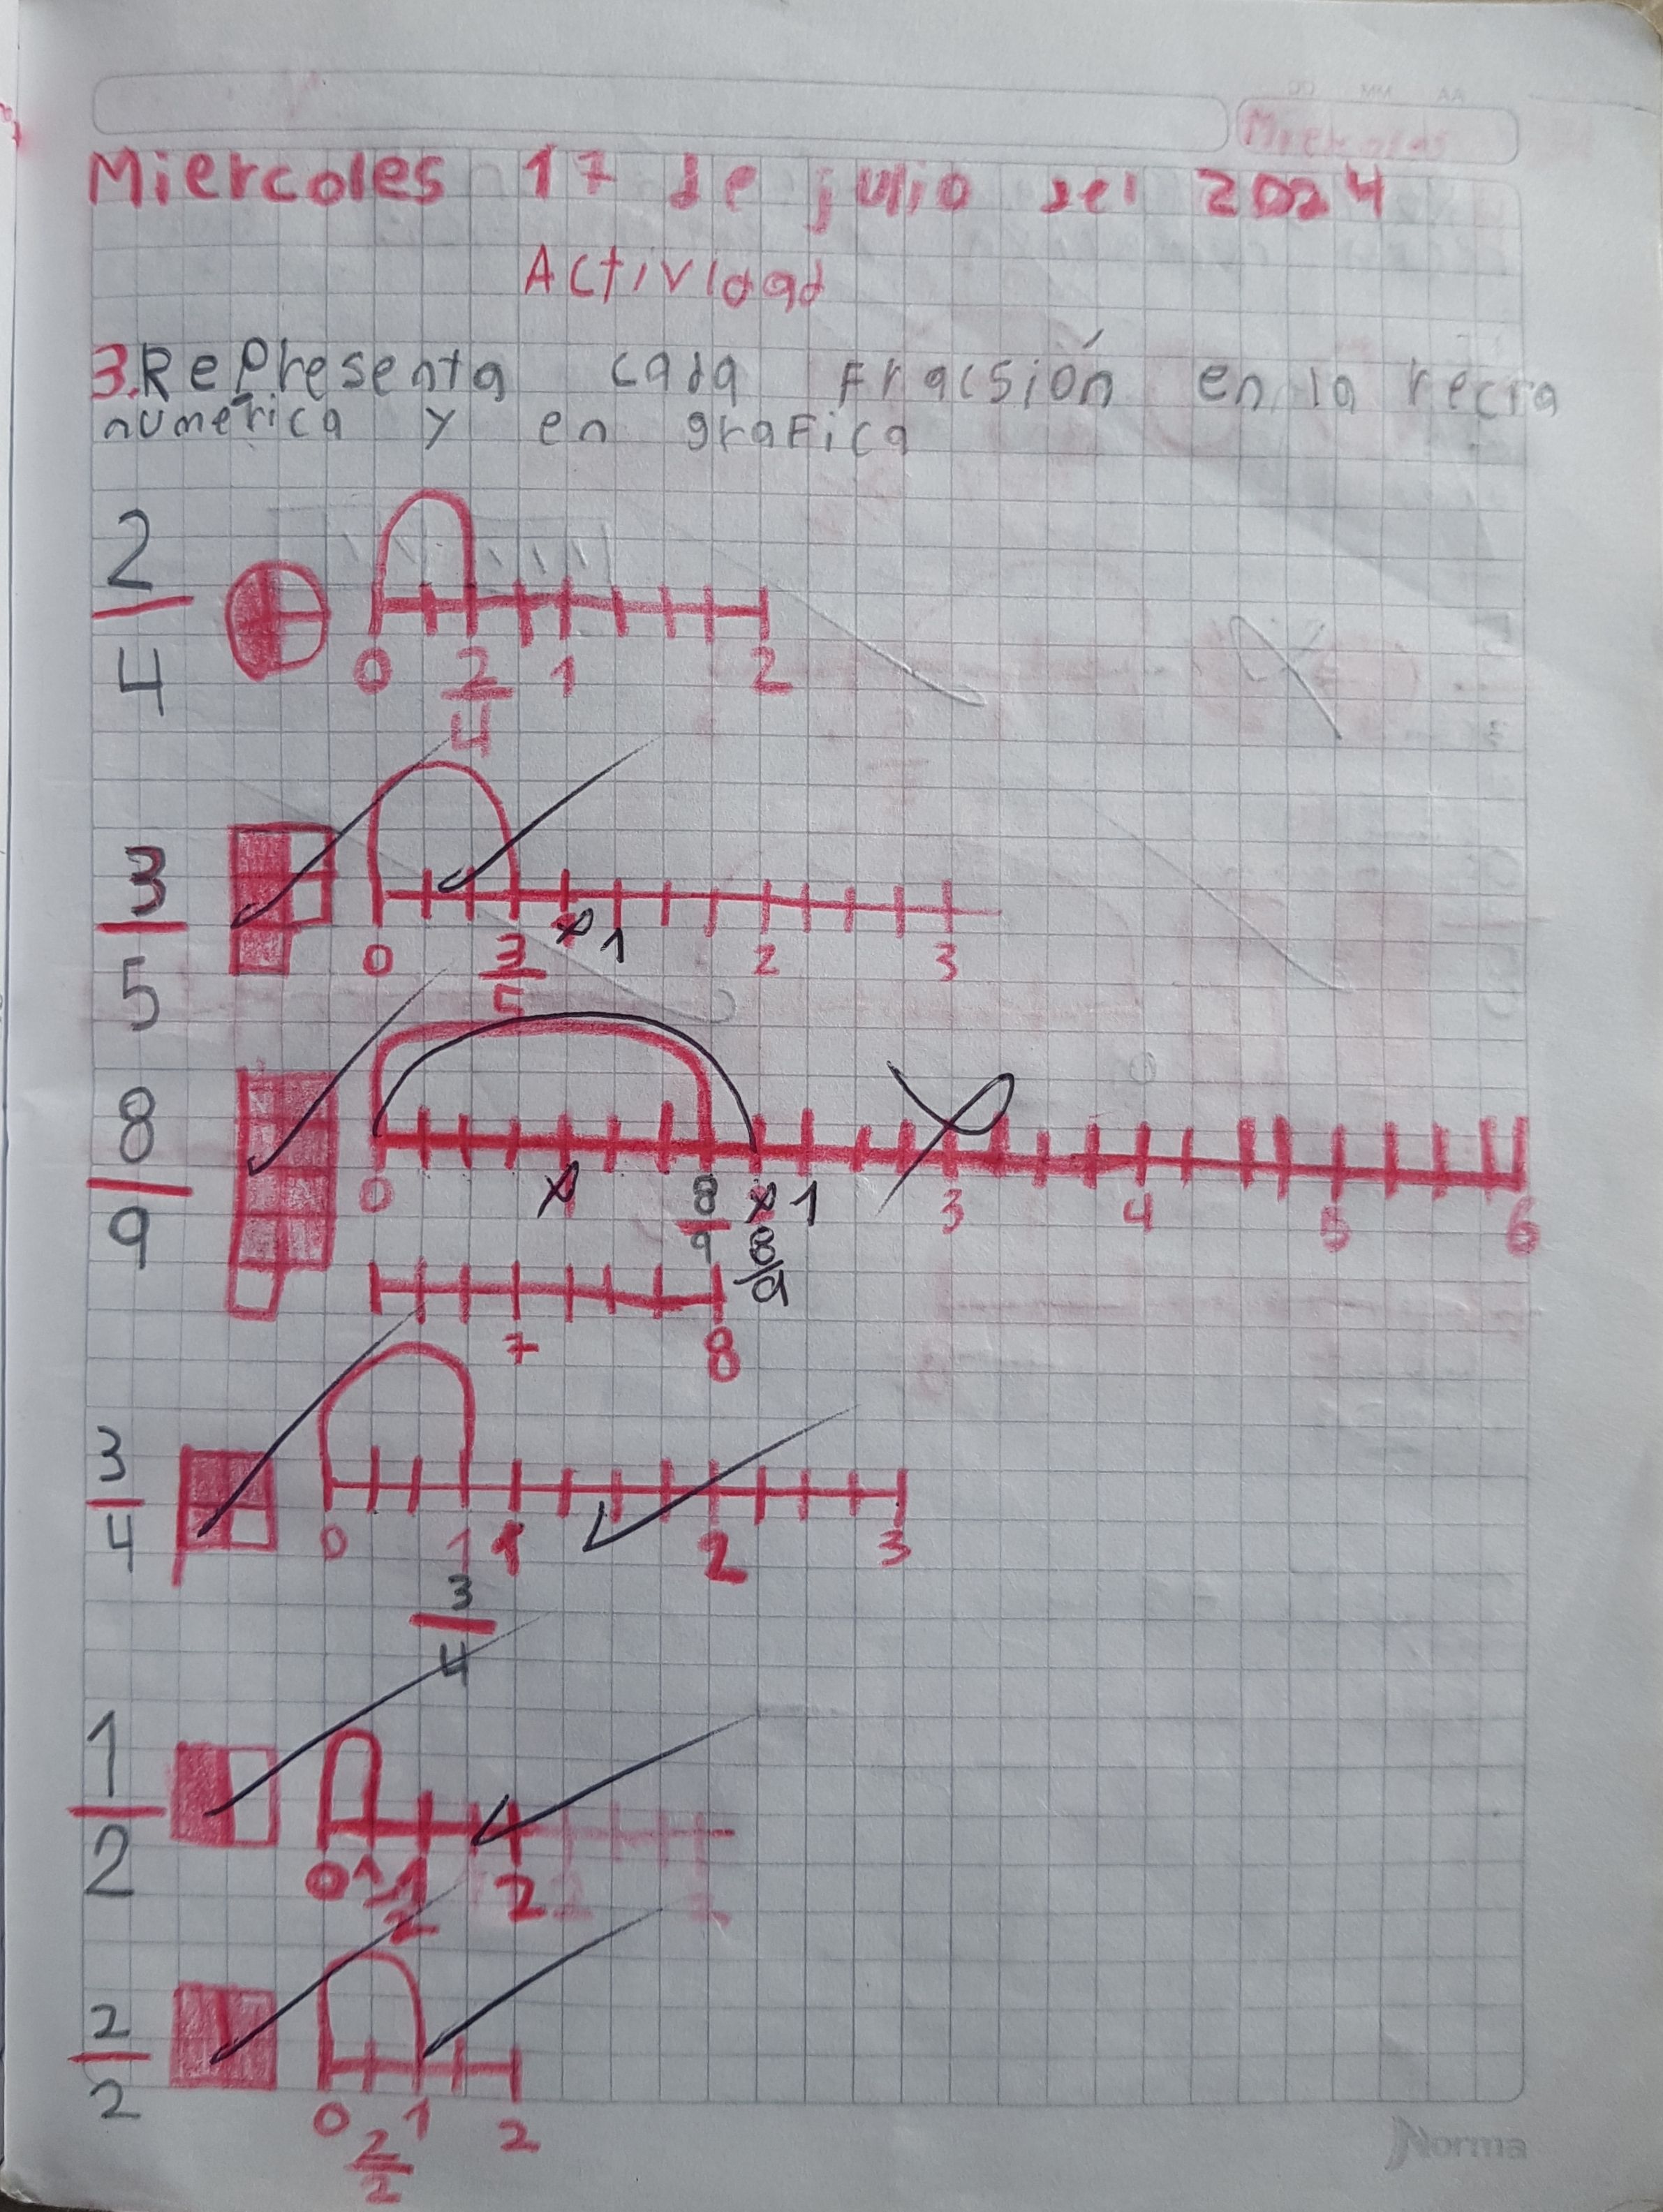 DD MM AA
Miercoles
Miercoles 17 de julio del 2024
Actividad
3. Representa cada Fracsión en la recta
numerica y en graFica
2
4
0 2 1 2
4
3
5
0 3 1 2 3
5
8
9
0 8 1 3 4 5 6
9 8
9
7 8
3
4
0 1 1 2 3
3
4
1
2
0 1 1 2
2
2
2
0 1 2
2
2
Norma